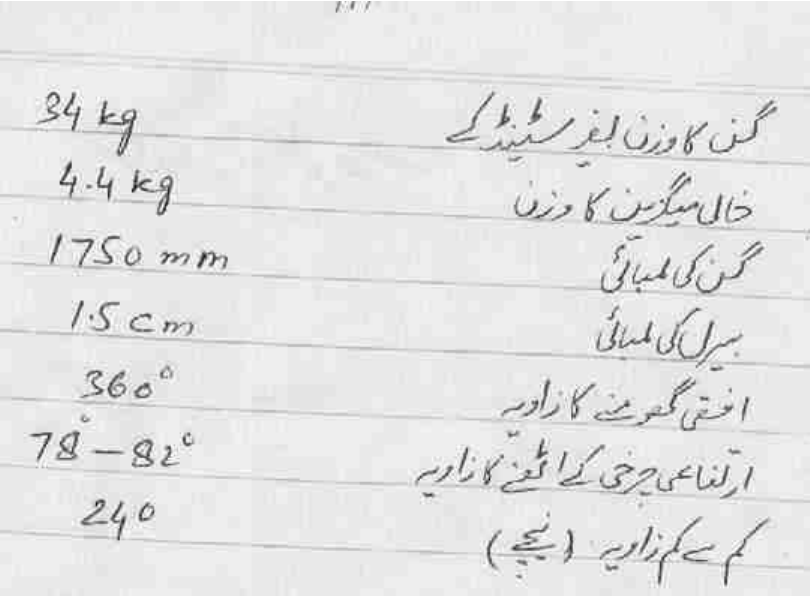 گن کا وزن بغیر سٹینڈ کے 34 kg
خالی میگزین کا وزن 4.4 kg
گن کی لمبائی 1750 mm
بیرل کی لمبائی 1.5 cm
افقی گھومنے کا زاویہ 360°
ارتفاعی چرخی کے اٹھنے کا زاویہ 78° - 82°
کم سے کم زاویہ (نیچے) 240